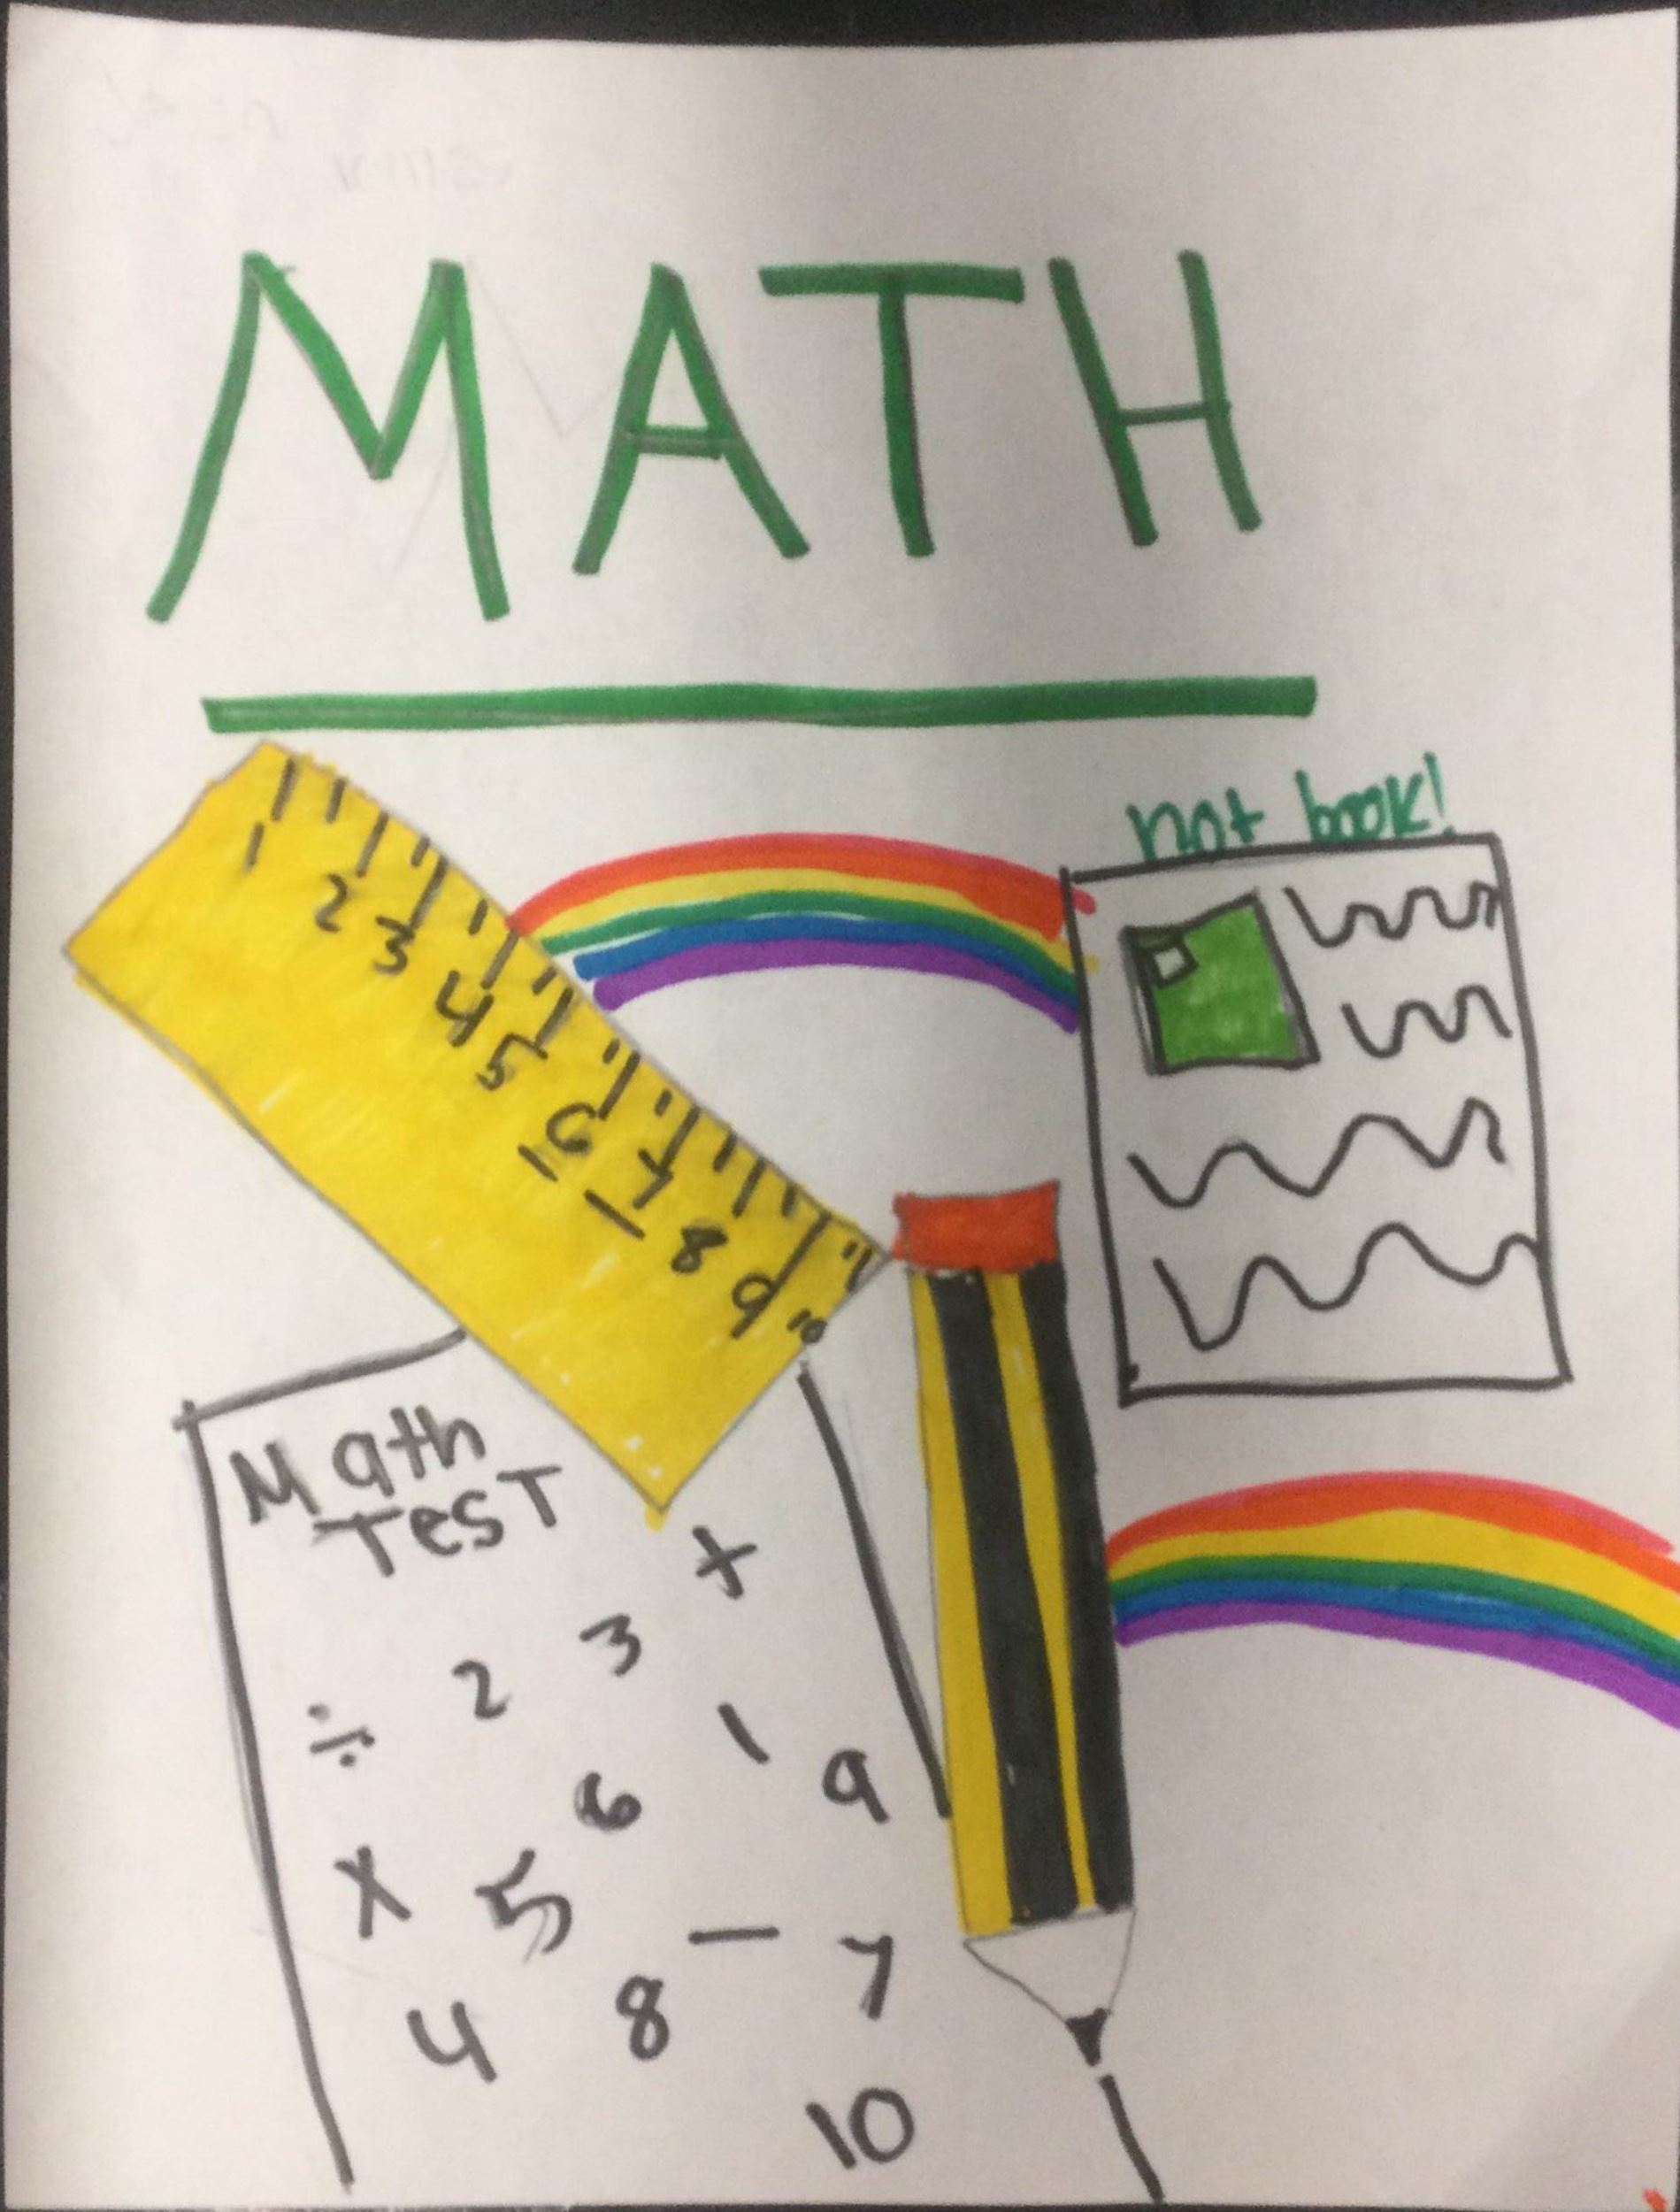 MATH
not book!
1 2 3 4 5 6 7 8 9 10
Math
TesT
+
÷ 2 3
1
6 9
x 5
− 7
4 8
10